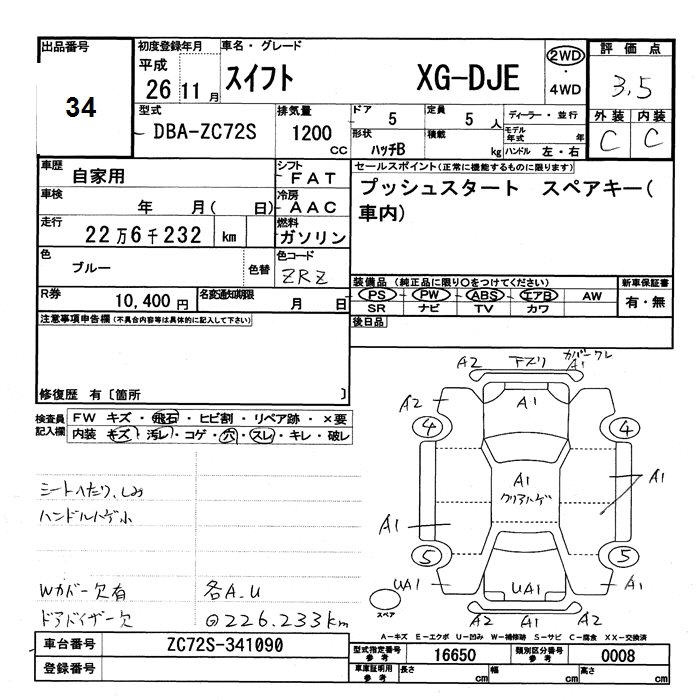 出品番号
34
初度登録年月
平成
26 11月
車名・グレード
スイフト XG-DJE
2WD
・
4WD
評価点
3.5
外装 内装
C C
型式
DBA-ZC72S
排気量
1200
CC
ドア
5
定員
5 人
形状
ハッチB
積載
kg
ディーラー・並行
モデル年式 年
ハンドル 左・右
車歴
自家用
シフト
FAT
車検
年 月( 日)
冷房
AAC
走行
22万6千232 km
燃料
ガソリン
色
ブルー
色替
色コード
ZRZ
R券
10,400円
名変通知期限
月 日
セールスポイント(正常に機能するものに限ります)
プッシュスタート スペアキー(
車内)
装備品 (純正品に限り○をつけてください)
PS PW ABS エアB AW
SR ナビ TV カワ
新車保証書
有・無
後日品
注意事項申告欄(不具合内容等は具体的に記入して下さい)
修復歴 有〔箇所 〕
検査員
記入欄
FW キズ・飛石・ヒビ割・リペア跡・×要
内装 キズ・汚レ・コゲ・穴・スレ・キレ・破レ
シートヘたり、しみ
ハンドルハゲ小
Wカバー欠有
ドアバイザー欠
各A.U
◎226.233km
A2 下ズリ カバーワレ
A1
A2
A1
4 4
A1
クリアハゲ
A1
A1
5 5
UA1
UA1
A1
A2 A1 A2
スペア
A-キズ E-エクボ U-凹み W-補修跡 S-サビ C-腐食 XX-交換済
車台番号
ZC72S-341090
登録番号
型式指定番号
参考
16650
類別区分番号
参考
0008
車庫証明用
参考
長さ cm 幅 cm 高さ cm